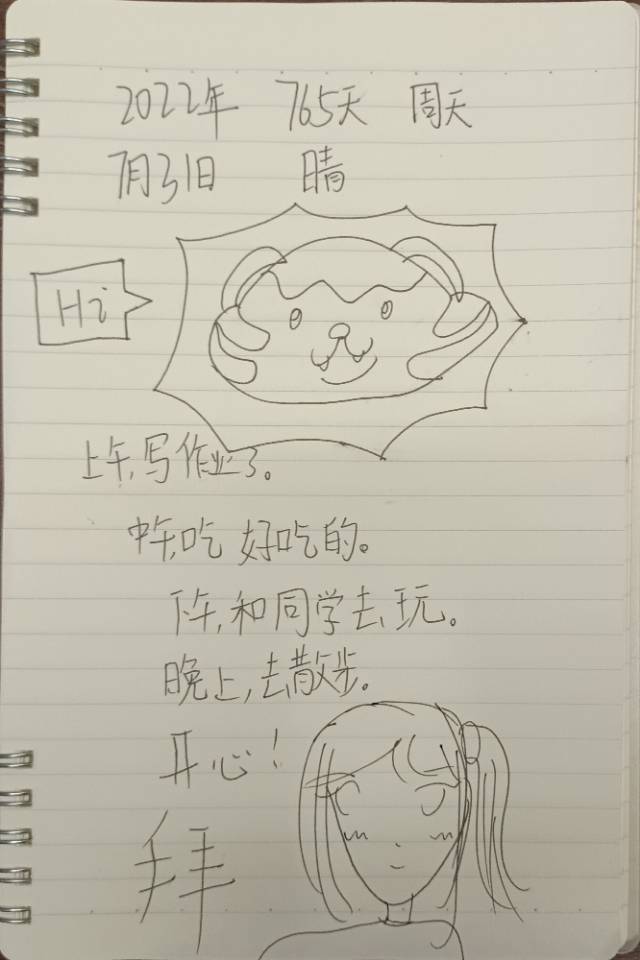 2022年 765天 周天
7月31日 晴
Hi
上午,写作业了。
中午,吃好吃的。
下午,和同学去玩。
晚上,去散步。
开心!
拜